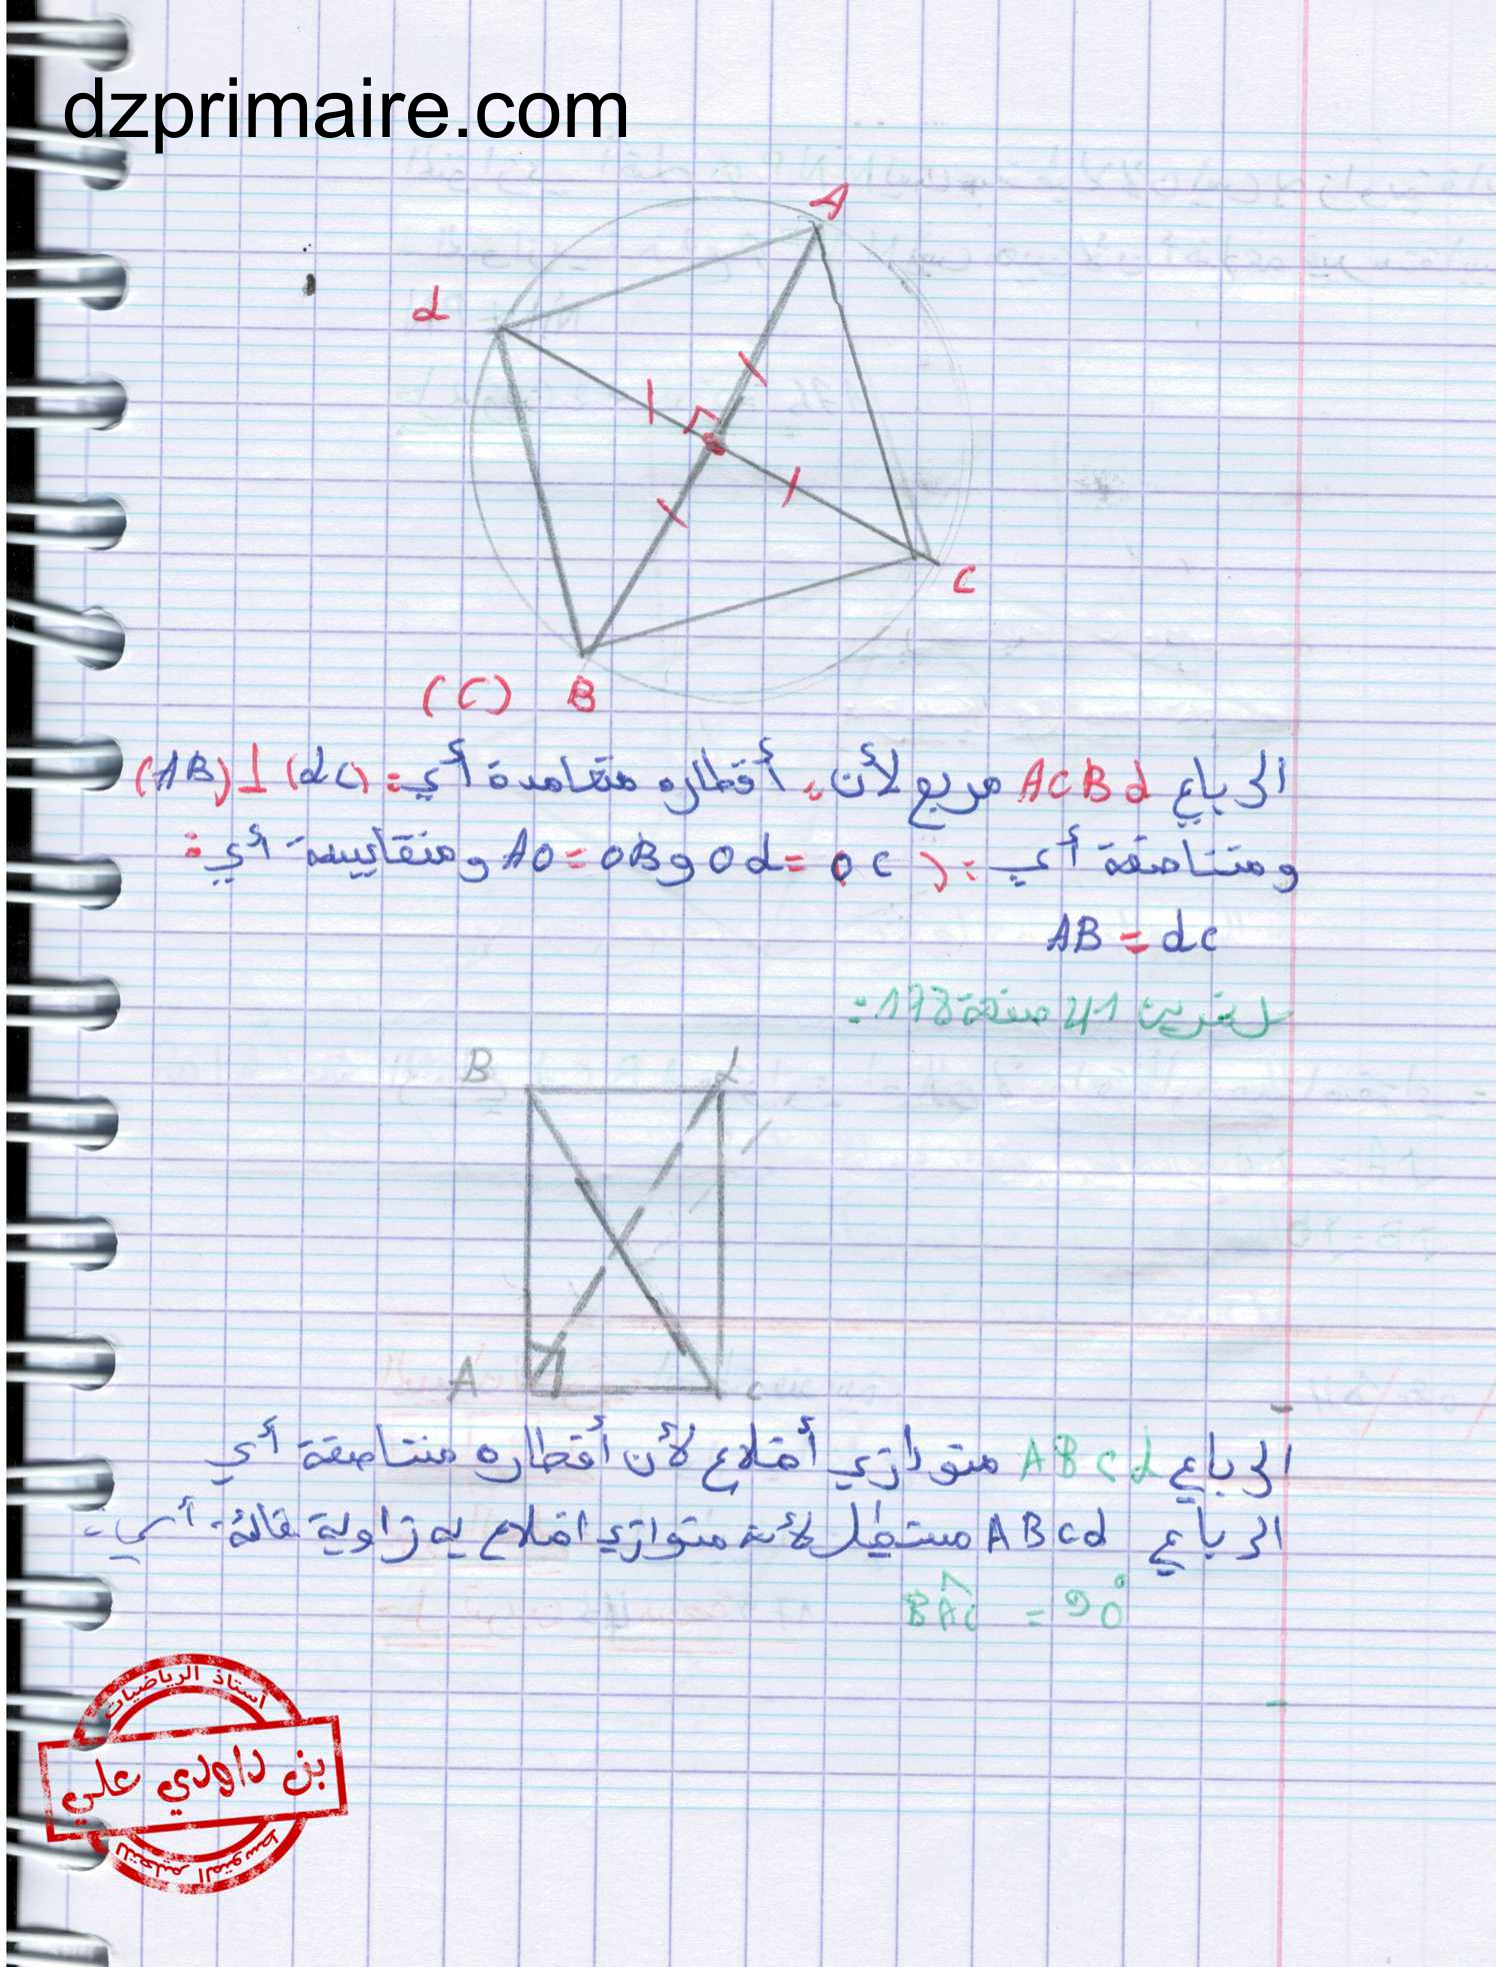 dzprimaire.com
A
d
C
(C) B
الرباعي ACBd مربع لأن: أقطاره متعامدة أي: (AB)⊥(dC)
ومتناصفة أي: (AO=OB و Od=OC ومتقايسة أي:
AB = dc
تمرين 41 صفحة 178:
B d
A c
الرباعي ABCd متوازي أضلاع لأن أقطاره متناصفة أي
الرباعي ABCd مستطيل لأنه متوازي اضلاع به زاوية قائمة أي:
BÂC = 90°
أستاذ الرياضيات
بن داودي علي
للتعليم المتوسط